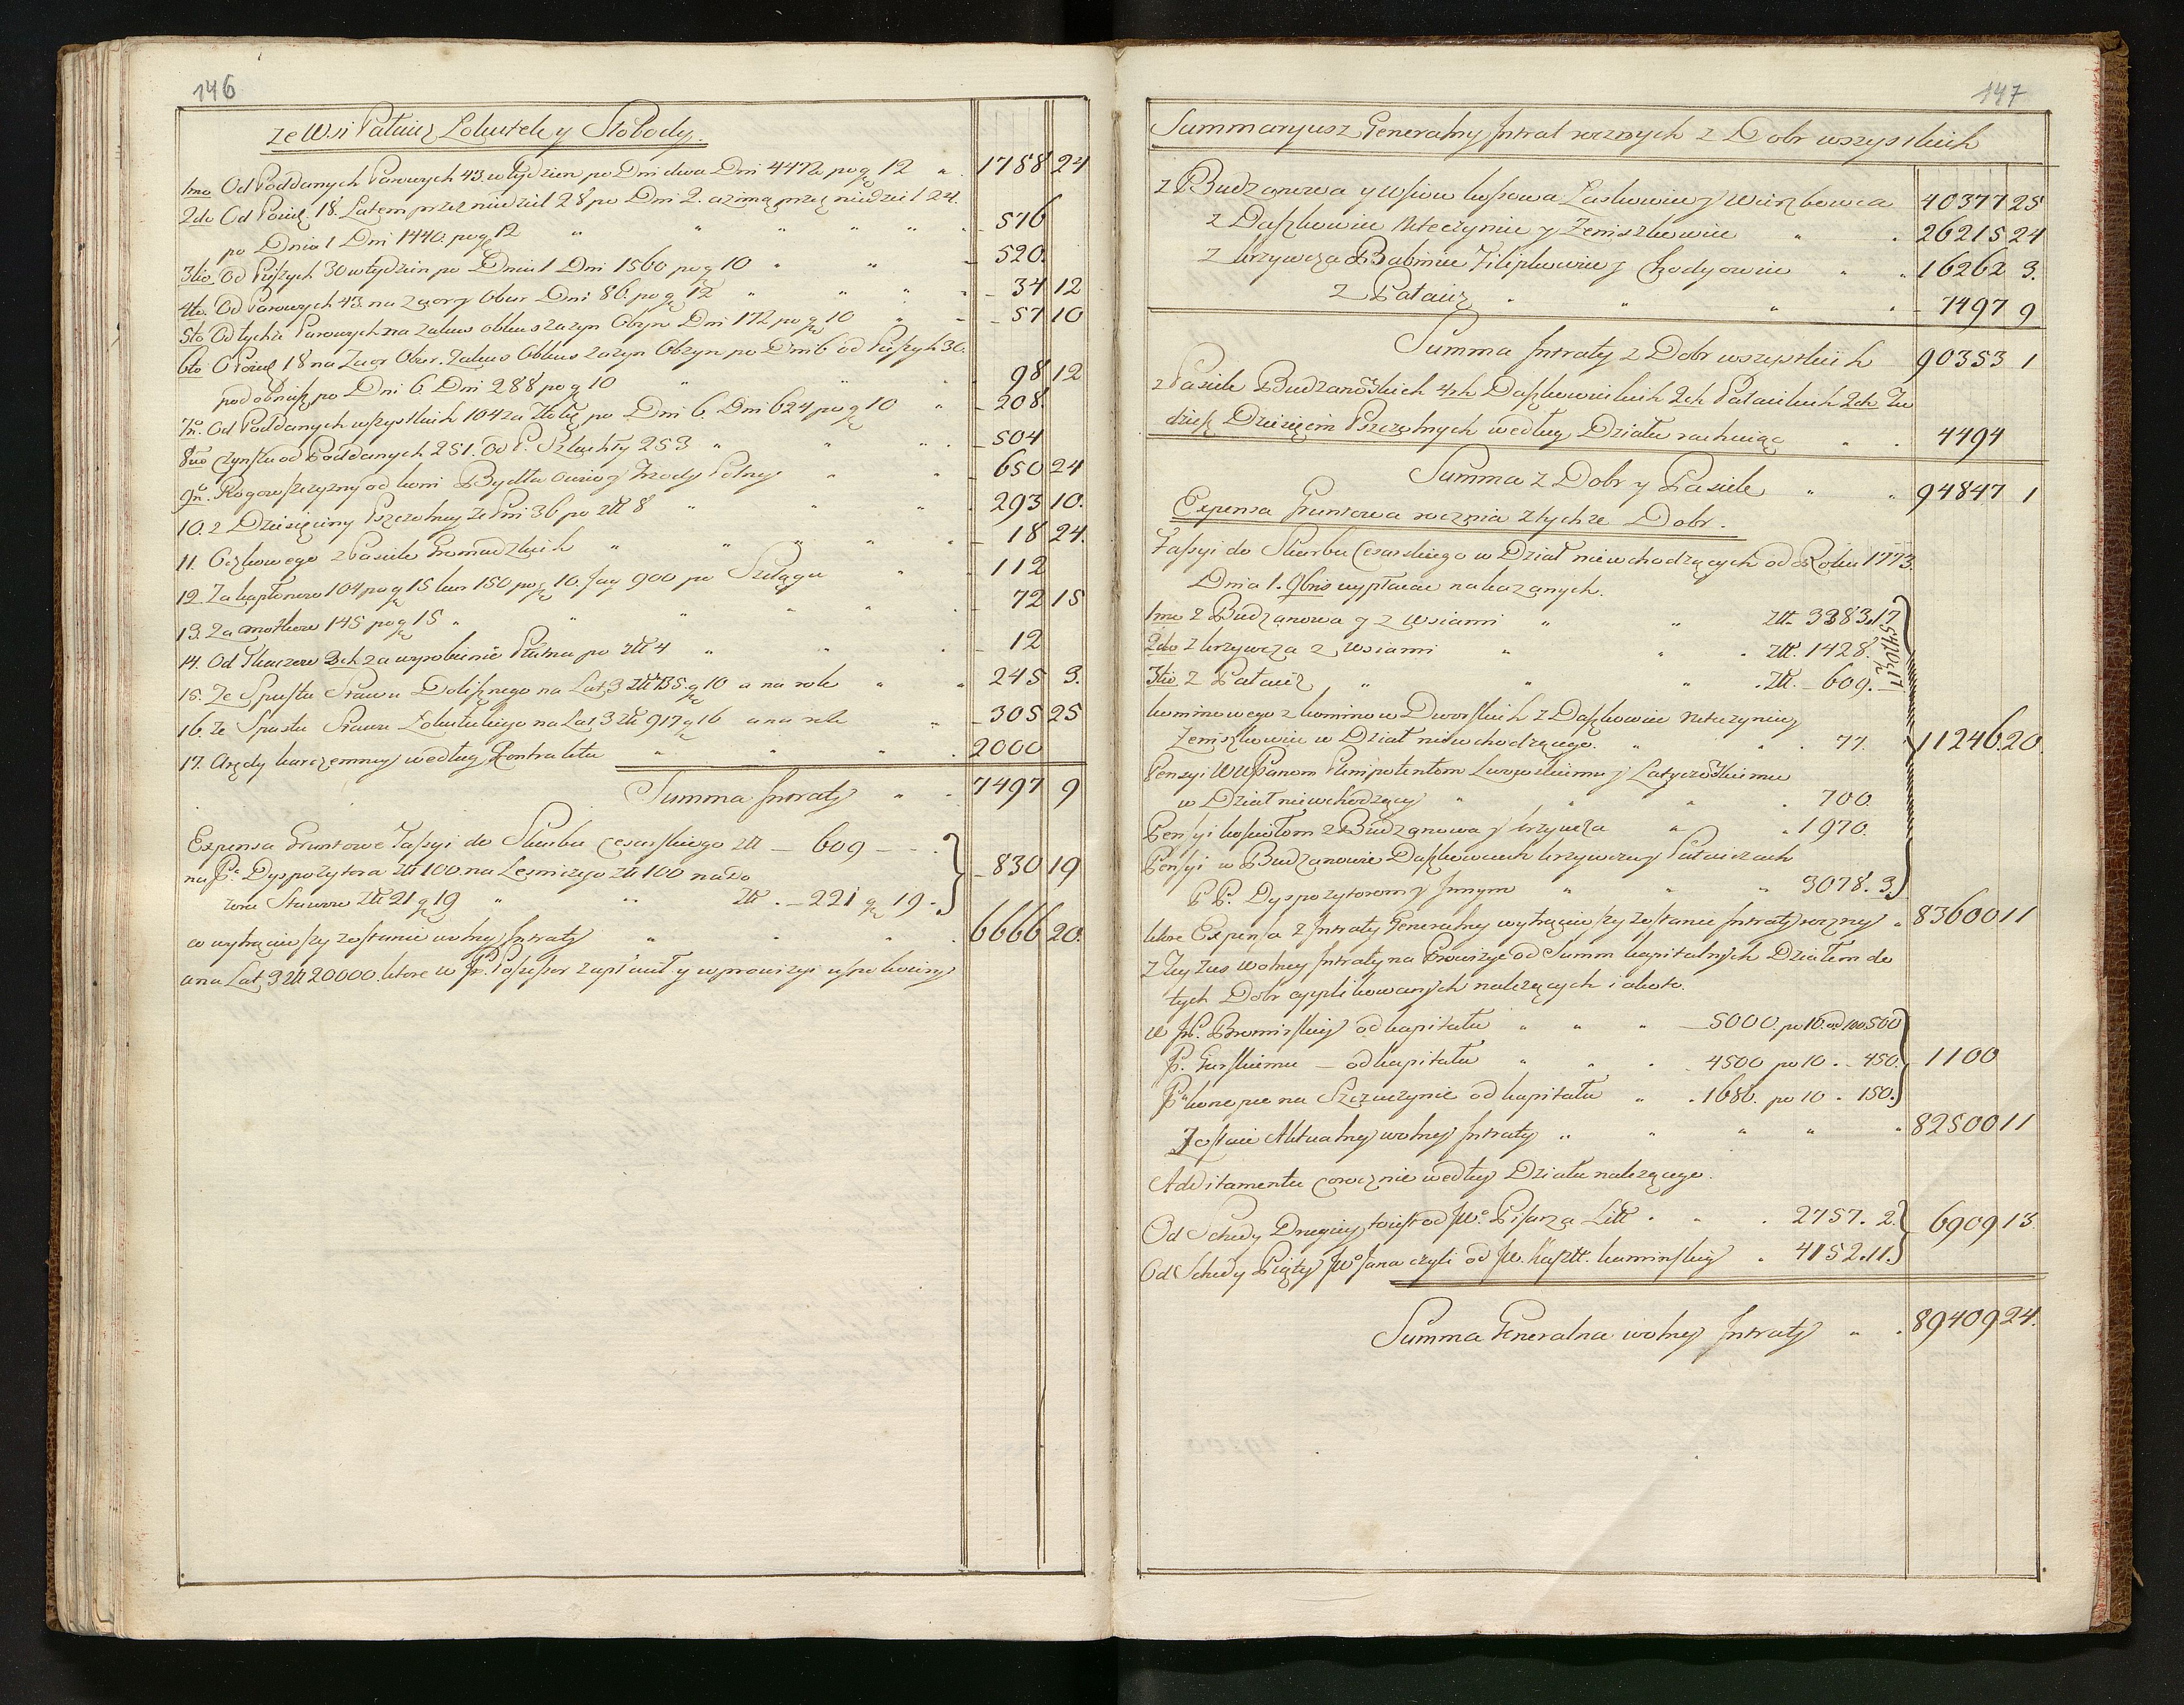 146
ze Wsi Pałaicz Lokutek y Słobody.
1mo Od Poddanych Parowych 43. w Tydzien po Dni dwa Dni 4472 po gr 12 1758 24
2do Od Pojed. 18. Latem przez niedziel 28 po Dni 2. a zimą przez niedziel 24.
po Dniu 1 Dni 1440. po gr 12 576
3tio Od Pieszych 30 w tydzien po Dniu 1 Dni 1560 po gr 10 520.
4to. Od Parowych 43. na Zaor y Obor Dni 86. po gr 12 34 12
5to Od tychże Parowych na zakos obkos zażyn Obżyn Dni 172 po gr 10 57 10
6to O Pojed 18 na Zaor Obor. Zakos Obkos zażyn Obżyn po Dni 6 od Pieszych 30.
podobnież po Dni 6. Dni 288 po gr 10 98 12
7o. Od Poddanych wszystkich 104 za Tłokę po Dni 6. Dni 624 po gr 10 208.
8vo Czynszu od Poddanych 251. Od P. Szlachty 253 504
9o. Rogowszczyzny od koni Bydła owiec y trzody 650 24
10. z Dziesięciny Pszczelney ze Pni 36 po złł 8 293 10.
11. Oczkowego z Pasiek Gromadzkich 18 24.
12. Za kapłonow 104 po gr 15 kur 150 po gr 10. Jay 900 po Szelągu 112
13. Za motkow 145 po gr 15 72 15
14. Od Tkaczow 3ch za wyrobienie Płutna po złł 4 12
15. Ze Spustu Stawu Dolisznego na Lat 3 złł 735. gr 10 a na rok 245 3.
16. Ze Spustu Stawu Lokuteckiego na Lat 3 złł 917 gr 16 a na rok 305 25
17. Arędy karczemney według Kontraktu 2000
Summa Intraty 7497 9
Expensa Gruntowe Taxyi do Skarbu Cesarskiego złł 609
na P. Dyspozytora złł 100. na Lesniczego złł 100 na do 830 19
zoru Stawow złł 21 gr 19 złł. 221 gr 19.
co wytrąciwszy zostanie wolney Intraty 6666 20.
a na Lat 3 złł 20000. ktore W JP. Possessor zapłacił y w prowizyi uspokoiony
147
Summaryusz Generalny Intrat rocznych z Dobr wszystkich
z Budzanowa y Wsiow kossowa Laskowiec y Wierzbowca 40377 25
z Daszkowiec Neteczyniec y Zeniszkowiec 26215 24
z krzywcza Babiniec Filipkowiec y Chodyowiec 16262 3.
z Pałaicz 7497 9
Summa Intraty z Dobr wszystkich 90353 1
z Pasiek Budzanoskich 4ch Daszkowieckich 2ch Pałaickich 2ch Tu
dzież Dziesięcin Pszczelnych według Działu rachuiąc 4494
Summa z Dobr y Pasiek 94847 1
Expensa Gruntowa roczna z tychże Dobr.
Tassyi do Skarbu Cesarskiego w Dział niewchodzących od Roku 1773.
Dnia 1. 9bris wypłacac nakazanych.
1mo z Budzanowa y z wsiami złł. 3383.17
2do z krzywcza z wsiami złł. 1428.
3tio z Pałaicz złł. 609.
5420.17
kominowego z kominow Dworskich z Daszkowiec Neteczyniec y
Zeniszkowiec w Dział niewchodzącego. 77. 11246.20.
Pensyi WWPanom Plenipotentom Lwowskiemu y Latyczoskiemu
w Dział niewchodzący 700.
Pensyi kosciołom z Budzanowa y krzywcza 1970.
Pensyi w Budzanowie Daszkowcach krzywczu y Pałaiczach
P P. Dyspozytorom y Innym 3078. 3.
ktore Expensa z Intraty Generalney wytrąciwszy zostanie Intraty roczney 83600 11
z Tey zas wolney Intraty na Prowizye od Summ kapitalnych Działem do
tych Dobr applikowanych należących iakoto.
W JP. Bromirskiey od kapitału 5000. po 10. od 100 500
P. Gurskiemu od kapitału 4500 po 10 450. 1100
P. konopce na Szczuczynie od kapitału 1686. po 10 150.
Zostaie Aktualney wolney Intraty 82500 11
Additamentu corocznie według Działu należącego.
Od Schedy Drugiey toiest od JWo. Pisarza Litt 2757. 2. 6909 13.
Od Schedy Piątey JWo Jana czyli od JW. kasztt. kaminskiey 4152.11.
Summa Generalna wolney Intraty 89409 24.